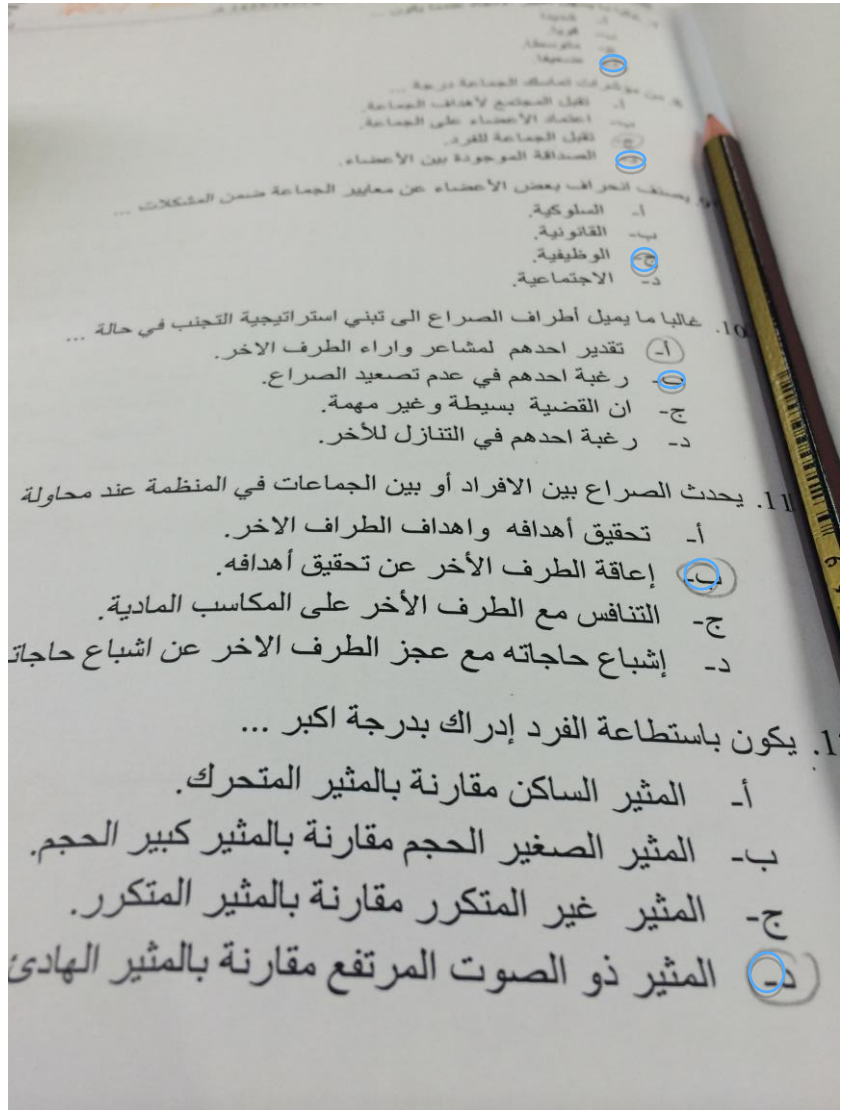 أ- شديدا
ب- قويا.
ج- متوسطا.
د- ضعيفا.
8. من مؤشرات تماسك الجماعة درجة ...
أ. تقبل المجتمع لأهداف الجماعة.
ب- اعتماد الأعضاء على الجماعة.
ج- تقبل الجماعة للفرد.
د- الصداقة الموجودة بين الأعضاء.
9. يصنف انحراف بعض الأعضاء عن معايير الجماعة ضمن المشكلات ...
أ- السلوكية.
ب- القانونية.
ج- الوظيفية.
د- الاجتماعية.
10. غالبا ما يميل أطراف الصراع الى تبني استراتيجية التجنب في حالة ...
أ- تقدير احدهم لمشاعر واراء الطرف الاخر.
ب- رغبة احدهم في عدم تصعيد الصراع.
ج- ان القضية بسيطة وغير مهمة.
د- رغبة احدهم في التنازل للأخر.
11. يحدث الصراع بين الافراد أو بين الجماعات في المنظمة عند محاولة
أ- تحقيق أهدافه واهداف الطراف الاخر.
ب- إعاقة الطرف الأخر عن تحقيق أهدافه.
ج- التنافس مع الطرف الأخر على المكاسب المادية.
د- إشباع حاجاته مع عجز الطرف الاخر عن اشباع حاجات
1. يكون باستطاعة الفرد إدراك بدرجة اكبر ...
أ- المثير الساكن مقارنة بالمثير المتحرك.
ب- المثير الصغير الحجم مقارنة بالمثير كبير الحجم.
ج- المثير غير المتكرر مقارنة بالمثير المتكرر.
د- المثير ذو الصوت المرتفع مقارنة بالمثير الهادئ